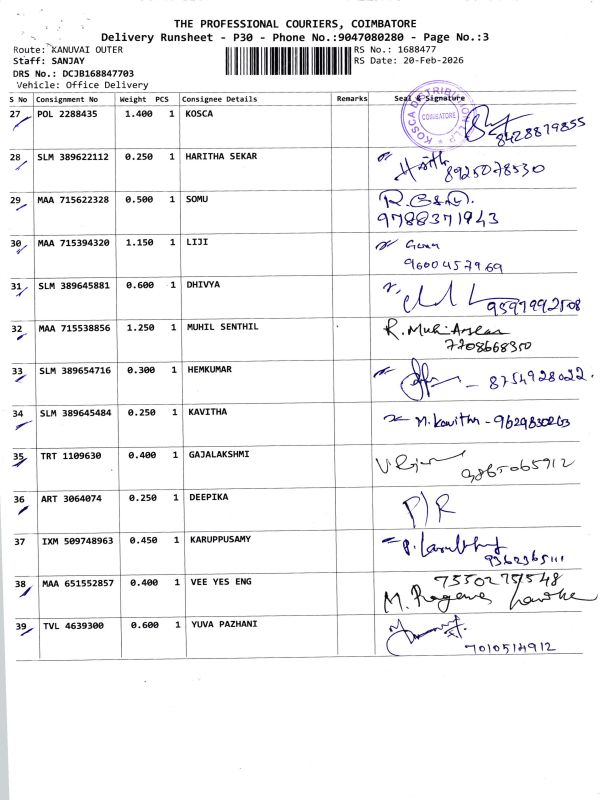 THE PROFESSIONAL COURIERS, COIMBATORE
Delivery Runsheet - P30 - Phone No.:9047080280 - Page No.:3
Route: KANUVAI OUTER RS No.: 1688477
Staff: SANJAY RS Date: 20-Feb-2026
DRS No.: DCJB168847703
Vehicle: Office Delivery
S No Consignment No Weight PCS Consignee Details Remarks Seal & Signature
27 POL 2288435 1.400 1 KOSCA
KOSCA DISTRIBUTION LLP
COIMBATORE
8428879855
28 SLM 389622112 0.250 1 HARITHA SEKAR
8925078530
29 MAA 715622328 0.500 1 SOMU
9788371943
30 MAA 715394320 1.150 1 LIJI
9600457969
31 SLM 389645881 0.600 1 DHIVYA
9597992508
32 MAA 715538856 1.250 1 MUHIL SENTHIL
7708668350
33 SLM 389654716 0.300 1 HEMKUMAR
8754928022.
34 SLM 389645484 0.250 1 KAVITHA
M. Kavitha -
35 TRT 1109630 0.400 1 GAJALAKSHMI
9865065912
36 ART 3064074 0.250 1 DEEPIKA
P/R
37 IXM 509748963 0.450 1 KARUPPUSAMY
9362365111
38 MAA 651552857 0.400 1 VEE YES ENG
75502751548
39 TVL 4639300 0.600 1 YUVA PAZHANI
7010514912